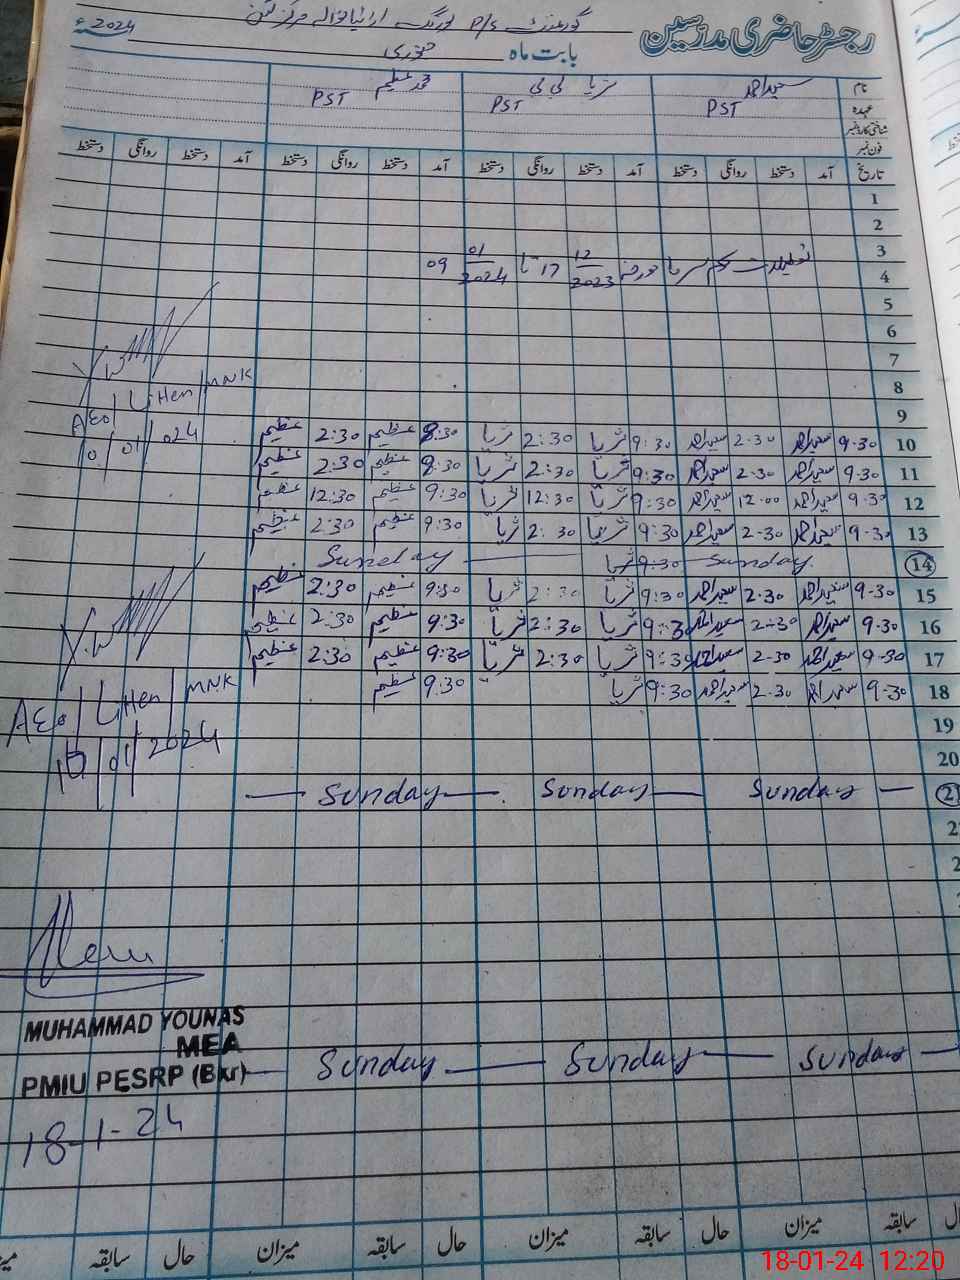 رجسٹر حاضری مدرسین
گورنمنٹ P/S
2024ء
بابت ماہ جنوری
نام سعید احمد ثریا بی بی محمد عظیم
عہدہ PST PST PST
شناختی کارڈ نمبر
فون نمبر
تاریخ آمد دستخط روانگی دستخط آمد دستخط روانگی دستخط آمد دستخط روانگی دستخط آمد دستخط روانگی دستخط
1
2
3
تعطیلات موسم سرما مورخہ 17 12/2023 تا 09 01/2024
4
5
6
7
8
9
10 9-30 سعید احمد 2-30 سعید احمد 9:30 ثریا 2:30 ثریا 8:30 عظیم 2:30 عظیم
11 9-30 سعید احمد 2-30 سعید احمد 9:30 ثریا 2:30 ثریا 8:30 عظیم 2:30 عظیم
12 9-30 سعید احمد 12-00 سعید احمد 9:30 ثریا 12:30 ثریا 9:30 عظیم 12:30 عظیم
13 9-30 سعید احمد 2-30 سعید احمد 9:30 ثریا 2:30 ثریا 9:30 عظیم 2:30 عظیم
14 Sunday 9:30 ثریا Sunday
15 9-30 سعید احمد 2-30 سعید احمد 9:30 ثریا 2:30 ثریا 9:30 عظیم 2:30 عظیم
16 9-30 سعید احمد 2-30 سعید احمد 9:30 ثریا 2:30 ثریا 9:30 عظیم 2:30 عظیم
17 9-30 سعید احمد 2-30 سعید احمد 9:30 ثریا 2:30 ثریا 9:30 عظیم 2:30 عظیم
18 9-30 سعید احمد 2-30 سعید احمد 9:30 ثریا 9:30 عظیم
19
20
21 Sunday Sunday Sunday
Sunday Sunday Sunday
AEO/L,Hen/MNK
10/01/024
AEO/L,Hen/MNK
/01/2024
MUHAMMAD YOUNAS
MEA
PMIU PESRP (Bkr)
18-1-24
سابقہ میزان حال سابقہ میزان حال سابقہ
18-01-24 12:20